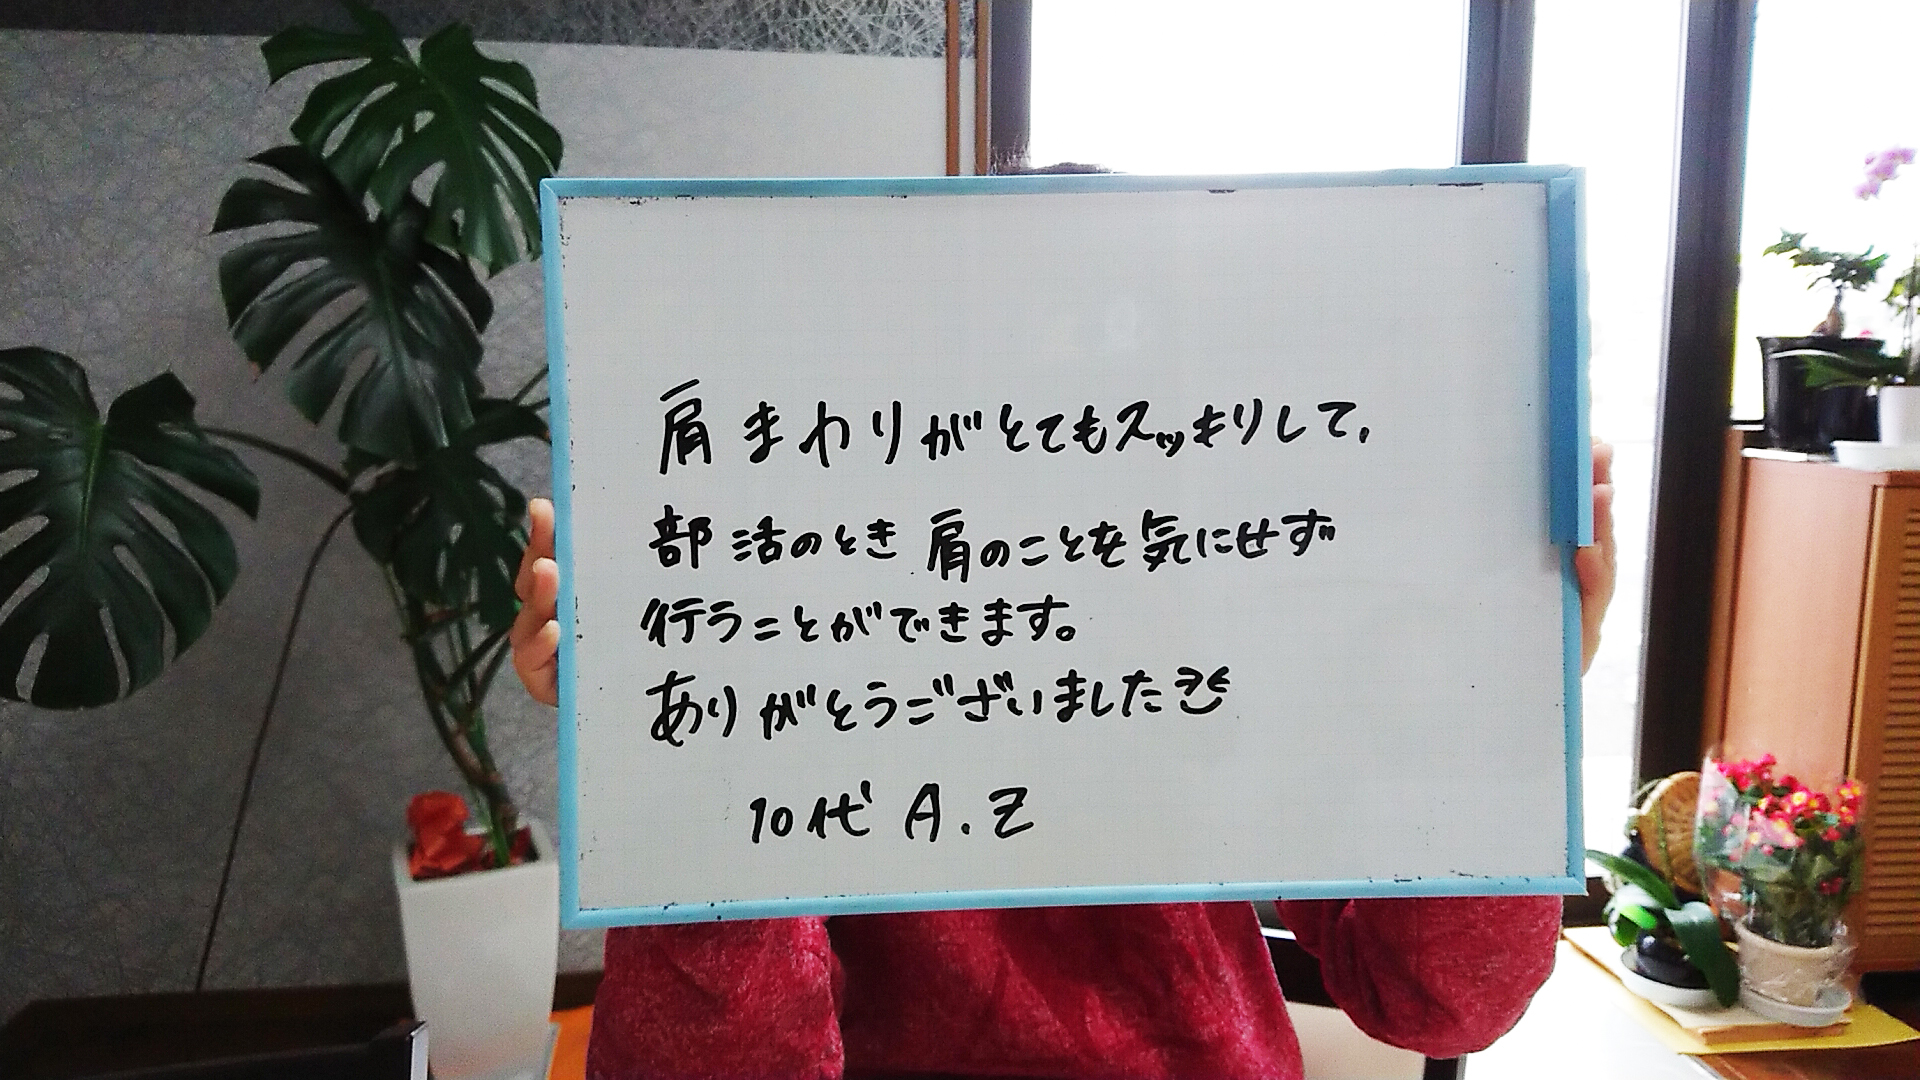 肩まわりがとてもスッキりして,
部活のとき肩のことを気にせず
行うことができます。
ありがとうございました
10代 A.Z